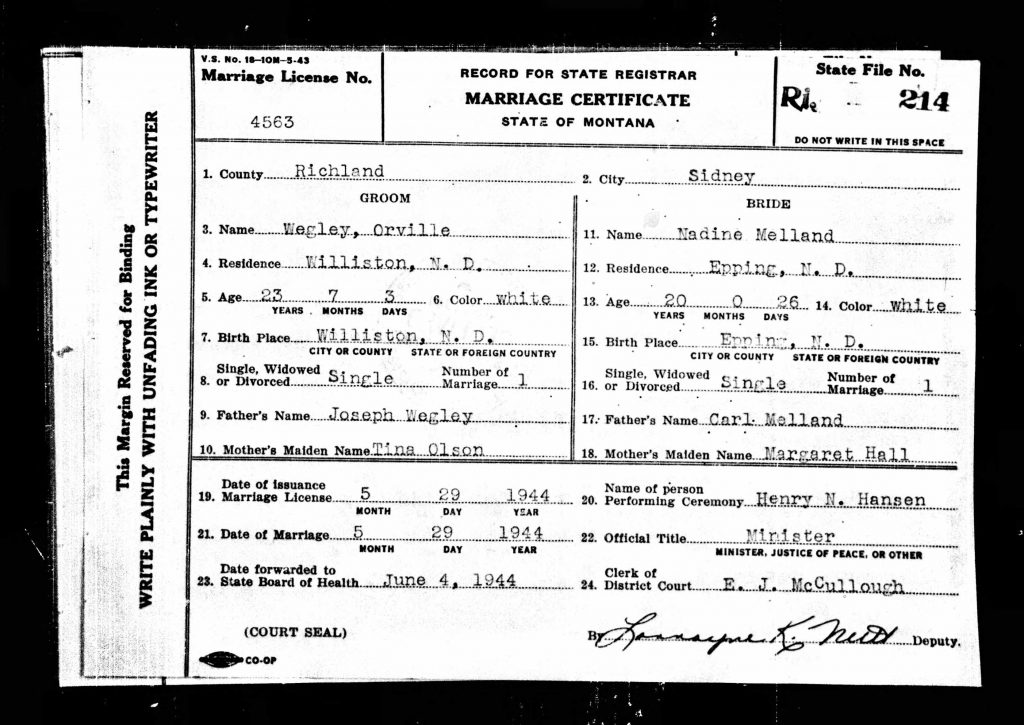 V.S. No. 18—10M—5-43
Marriage License No.
4563
RECORD FOR STATE REGISTRAR
MARRIAGE CERTIFICATE
STATE OF MONTANA
State File No.
Ri. 214
DO NOT WRITE IN THIS SPACE
This Margin Reserved for Binding
WRITE PLAINLY WITH UNFADING INK OR TYPEWRITER
1. County Richland
2. City Sidney
GROOM
3. Name Wegley, Orville
4. Residence Williston, N. D.
5. Age 23 7 3 6. Color white
YEARS MONTHS DAYS
7. Birth Place Williston, N. D.
CITY OR COUNTY STATE OR FOREIGN COUNTRY
8. Single, Widowed or Divorced Single Number of Marriage 1
9. Father's Name Joseph Wegley
10. Mother's Maiden Name Tina Olson
BRIDE
11. Name Nadine Melland
12. Residence Epping, N. D.
13. Age 20 0 26 14. Color white
YEARS MONTHS DAYS
15. Birth Place Epping, N. D.
CITY OR COUNTY STATE OR FOREIGN COUNTRY
16. Single, Widowed or Divorced Single Number of Marriage 1
17. Father's Name Carl Melland
18. Mother's Maiden Name Margaret Hall
19. Date of issuance Marriage License 5 29 1944
MONTH DAY YEAR
20. Name of person Performing Ceremony Henry N. Hansen
21. Date of Marriage 5 29 1944
MONTH DAY YEAR
22. Official Title Minister
MINISTER, JUSTICE OF PEACE, OR OTHER
23. Date forwarded to State Board of Health June 4, 1944
24. Clerk of District Court E. J. McCullough
(COURT SEAL)
By K. Deputy.
CO-OP